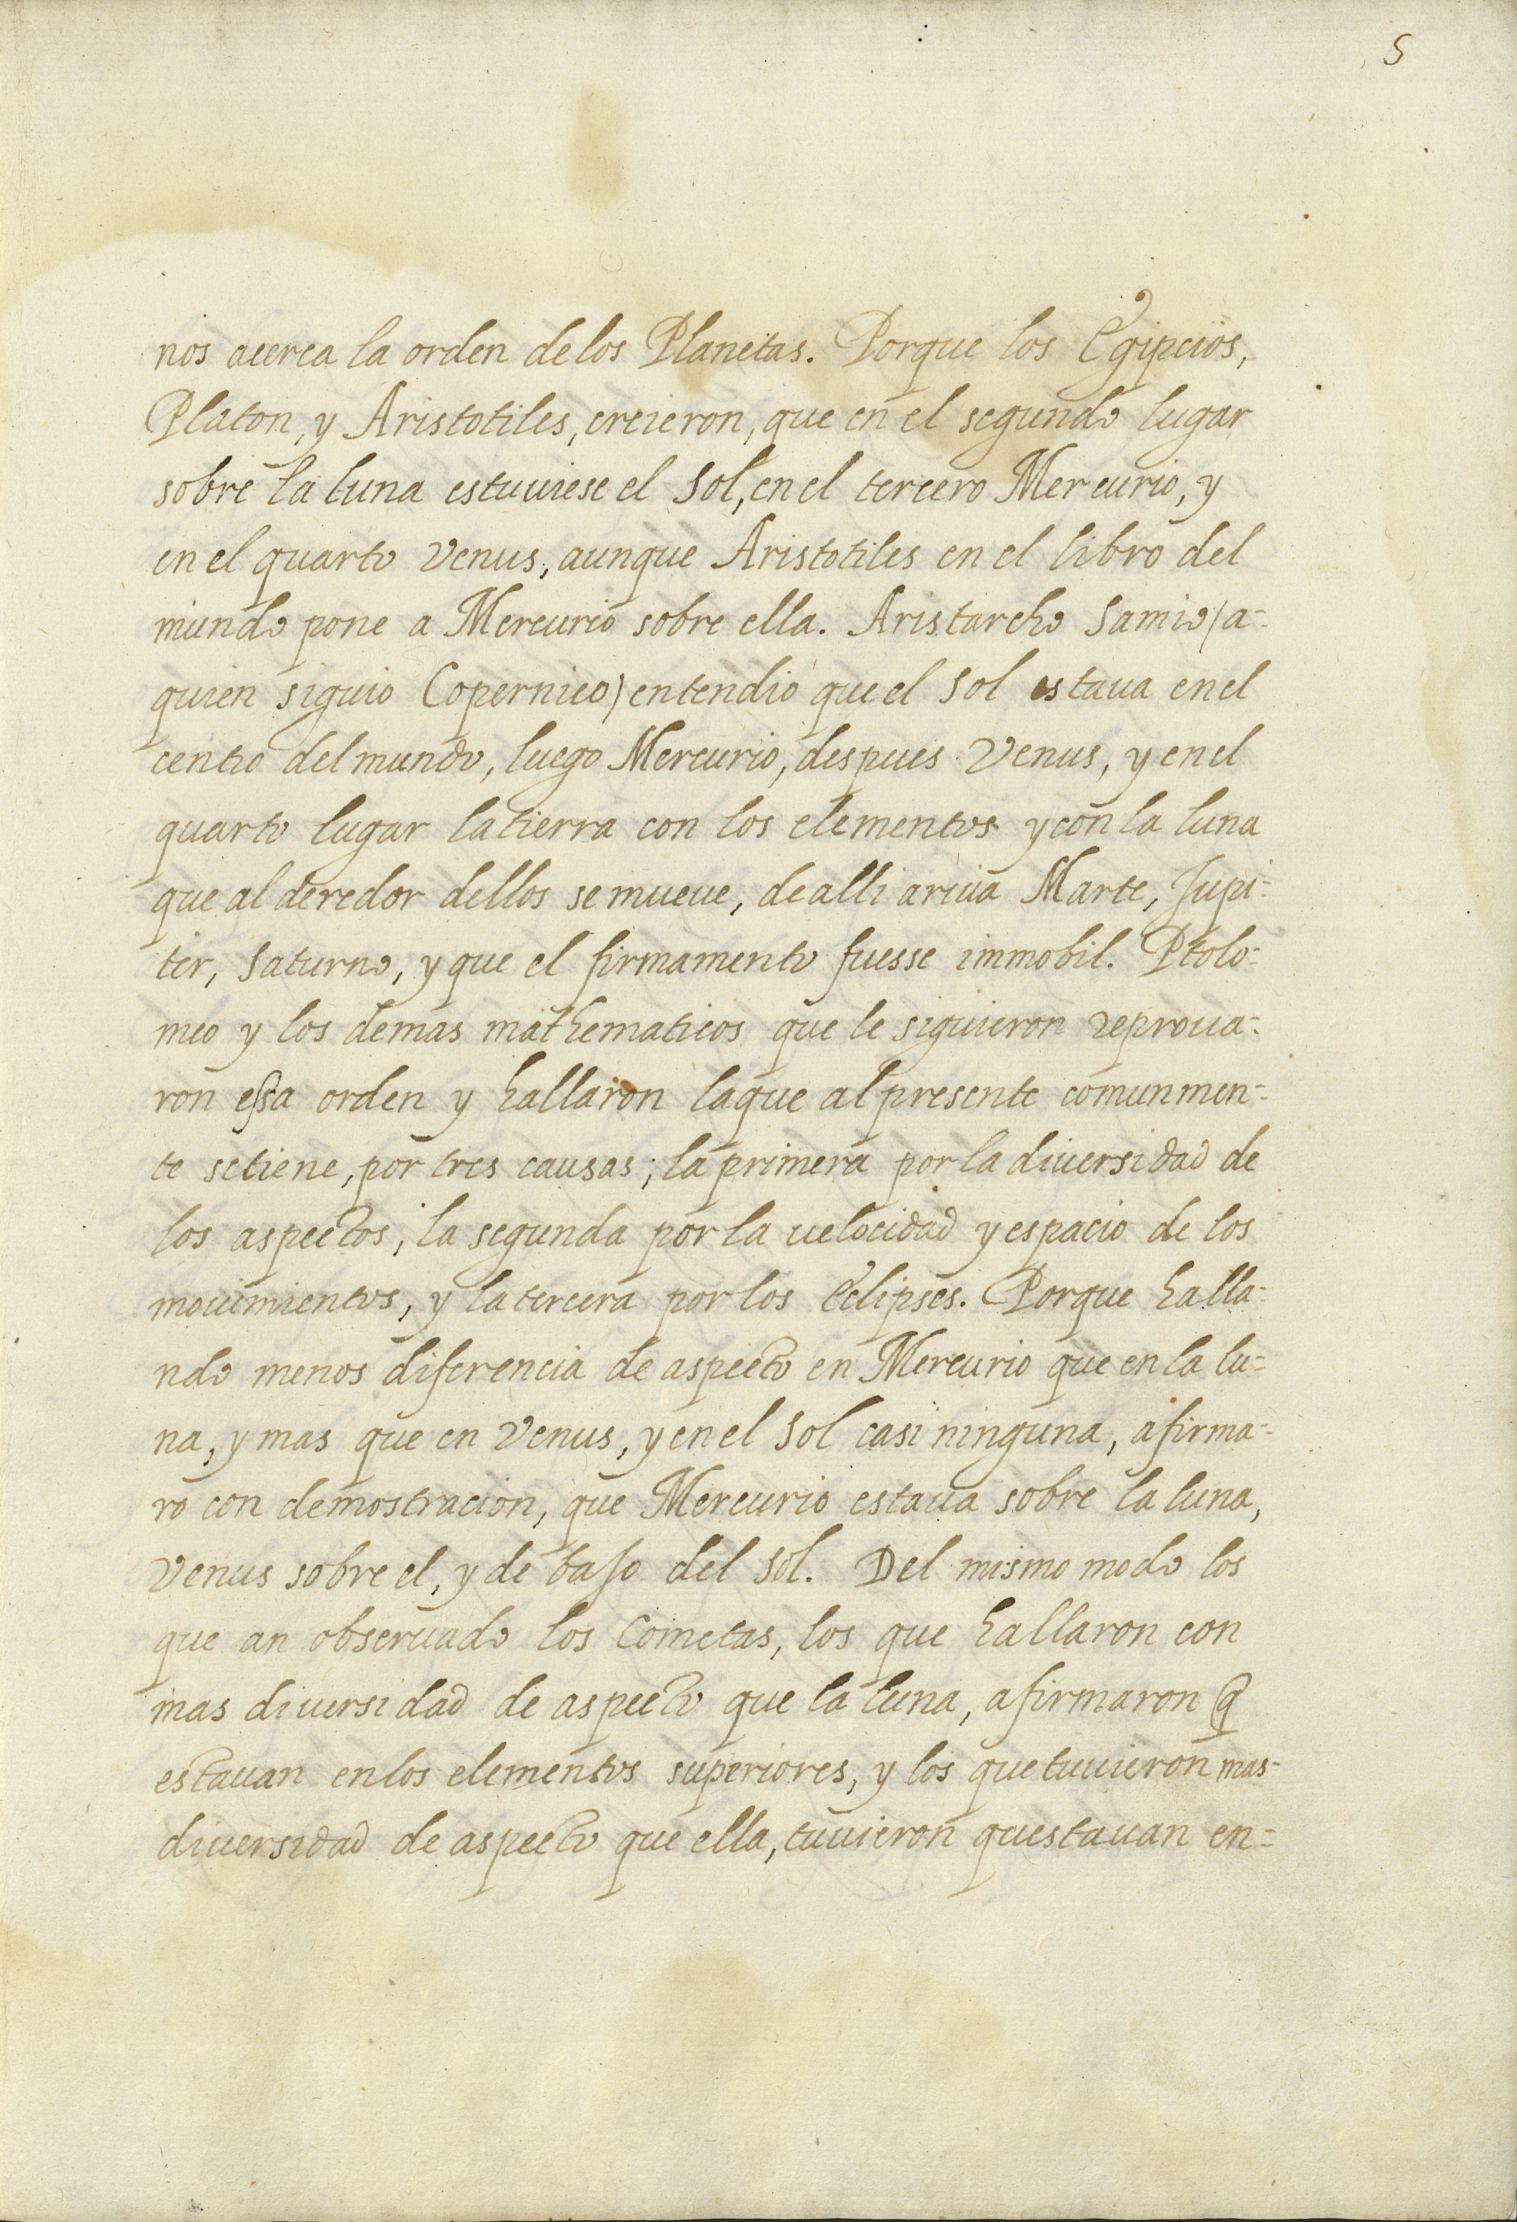 5
nos acerca la orden de los Planetas. Porque los Egipcios,
Platon, y Aristotiles, creieron, que en el segundo lugar
sobre la luna estuuiese el Sol, en el tercero Mercurio, y
en el quarto Venus, aunque Aristotiles en el libro del
mundo pone a Mercurio sobre ella. Aristarcho Samio (a=
quien siguio Copernico) entendio que el Sol estaua en el
centro del mundo, luego Mercurio, despues Venus, y en el
quarto lugar la tierra con los elementos y con la luna
que al deredor dellos se mueue, de alli ariua Marte, Jupi=
ter, Saturno, y que el firmamento fuesse immobil. Ptolo=
meo y los demas mathematicos que le siguieron reproua=
ron essa orden y hallaron la que al presente comunmen=
te se tiene, por tres causas; la primera por la diuersidad de
los aspectos; la segunda por la uelocidad y espacio de los
mouimientos, y la tercera por los Eclipses. Porque halla=
ndo menos diferencia de aspecto en Mercurio que en la lu=
na, y mas que en Venus, y en el Sol casi ninguna, afirma=
ro con demostracion, que Mercurio estaua sobre la luna,
Venus sobre el, y de bajo del Sol. Del mismo modo los
que an obseruado los Cometas, los que hallaron con
mas diuersidad de aspecto que la luna, afirmaron q̃
estauan en los elementos superiores, y los que tuuieron mas-
diuersidad de aspecto que ella, tuuieron questauan en=